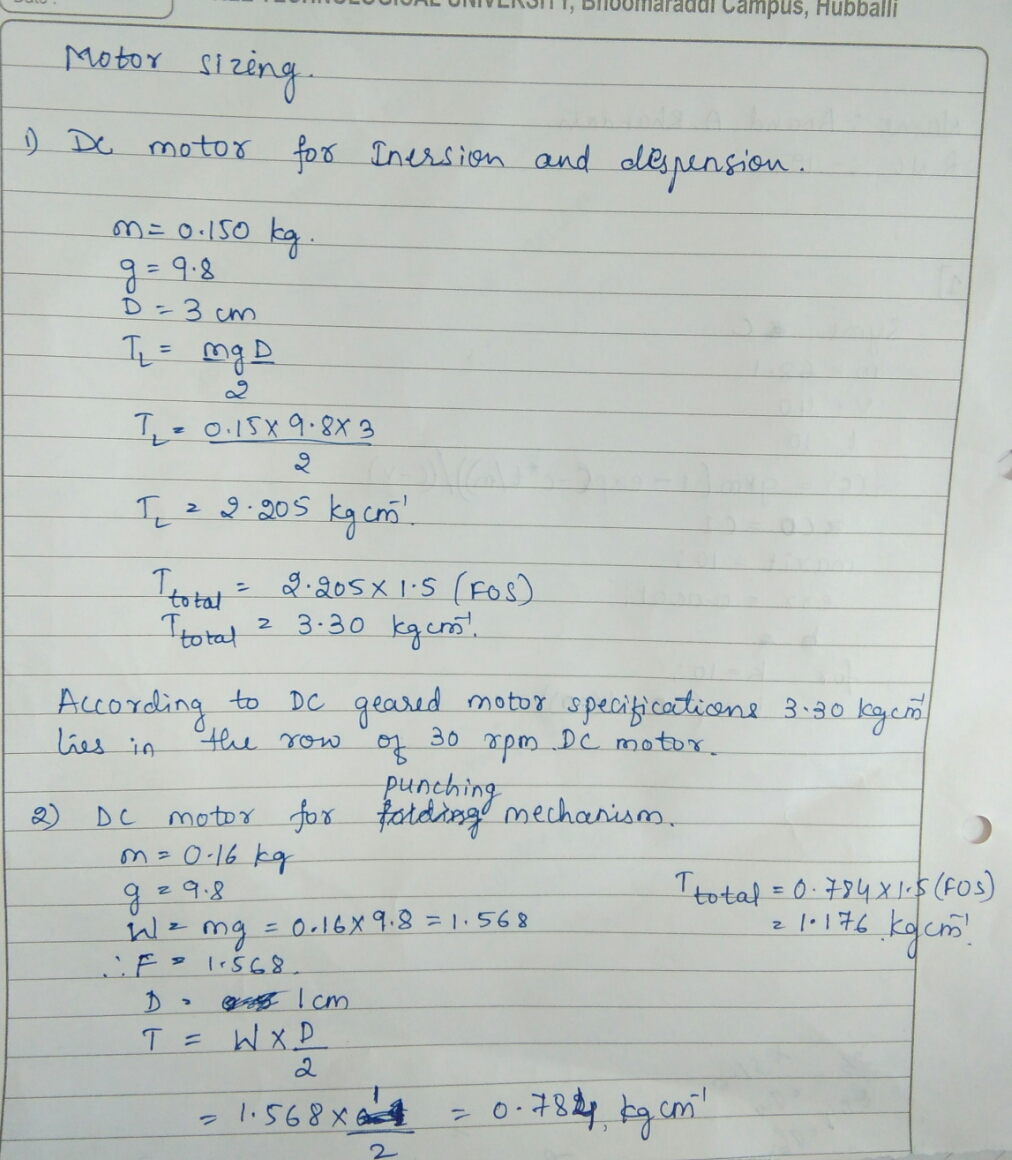 TECHNOLOGICAL UNIVERSITY, Bhoomaraddi Campus, Hubballi
Motor sizing.
1) DC motor for Inersion and despension.
m = 0.150 kg.
g = 9.8
D = 3 cm
T_L = mg D / 2
T_L = 0.15 x 9.8 x 3 / 2
T_L = 2.205 kg cm⁻¹.
T_total = 2.205 x 1.5 (FOS)
T_total = 3.30 kg cm⁻¹.
According to DC geared motor specifications 3.30 kg cm⁻¹
lies in the row of 30 rpm DC motor.
2) DC motor for punching mechanism.
m = 0.16 kg
g = 9.8
W = mg = 0.16 x 9.8 = 1.568
∴ F = 1.568.
D = 1 cm
T = W x D / 2
= 1.568 x 1 / 2 = 0.784 kg cm⁻¹
T_total = 0.784 x 1.5 (FOS)
= 1.176 kg cm⁻¹.